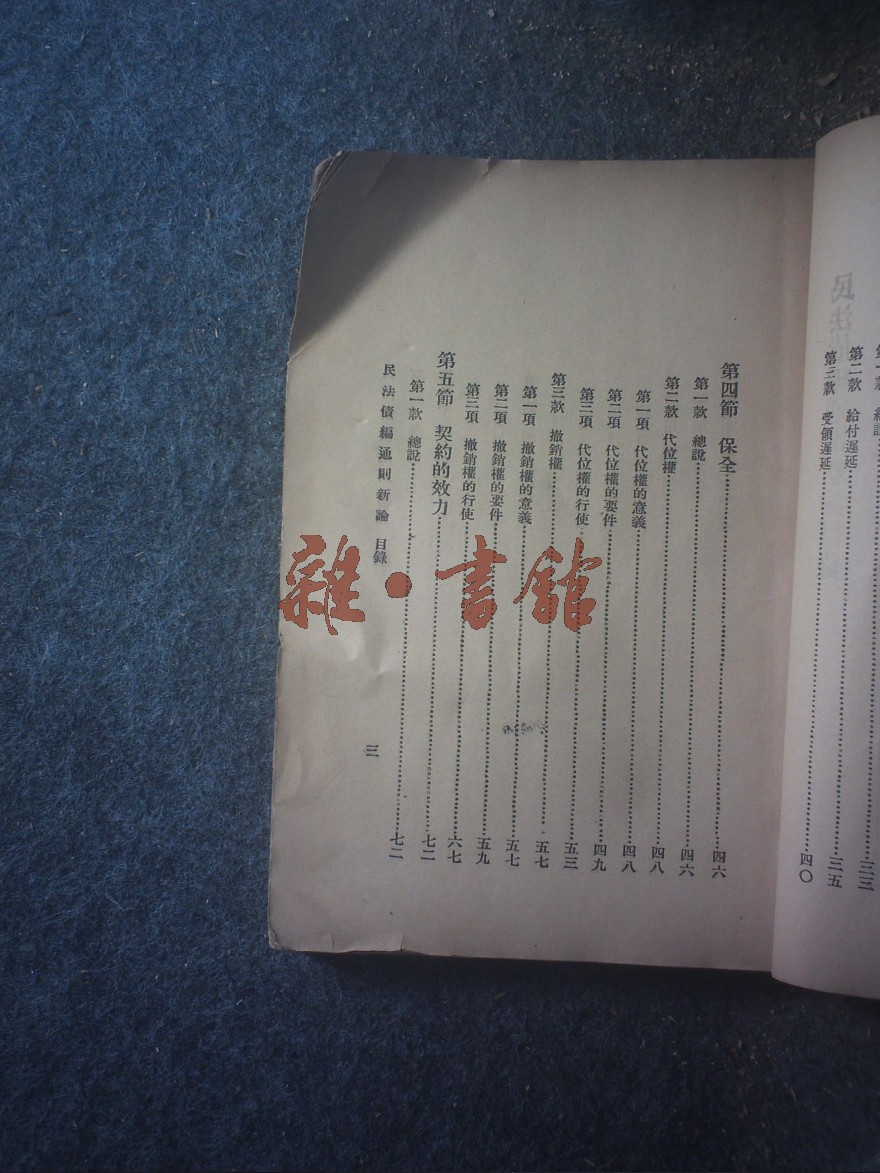 第二款 給付遲延……三五
第三款 受領遲延……四〇
第四節 保全……四六
第一款 總說……四六
第二款 代位權……四八
第一項 代位權的意義……四八
第二項 代位權的要件……四九
第三項 代位權的行使……五三
第三款 撤銷權……五七
第一項 撤銷權的意義……五七
第二項 撤銷權的要件……五九
第三項 撤銷權的行使……六七
第五節 契約的效力……七二
第一款 總說……七二
民法債編通則新論 目錄
三
雜·書館